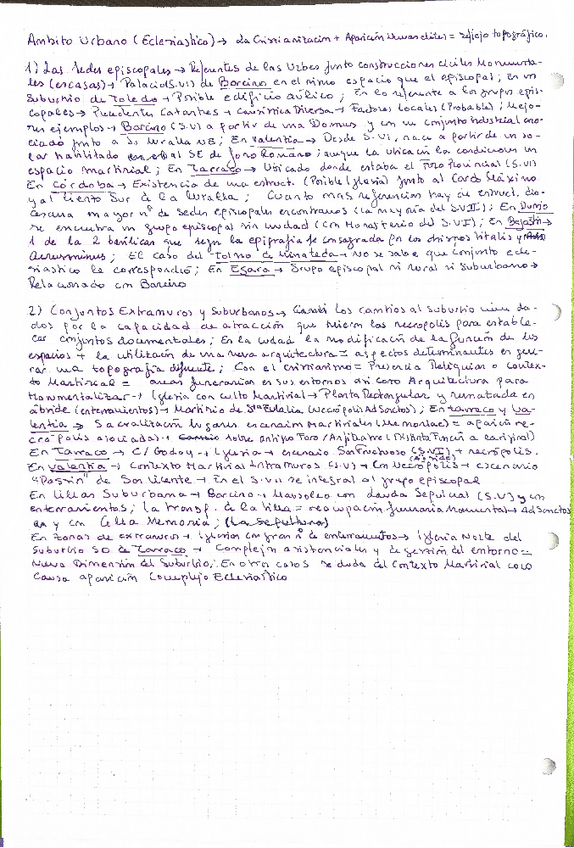 Ambito Urbano (Eclesiastico) → La Cristianizacion + Aparición Nuevas élites = reflejo topográfico.
1) Las sedes episcopales → Referentes de las Urbes junto construcciones civiles Monumenta-
les (escasas) → Palacio (S.VI) de Barcino en el mismo espacio que el episcopal; en un
Suburbio de Toledo → Posible edificio aúlico; En lo referente a los grupos epis-
copales → Precedentes Catastres → Casuistica Diversa → Factores Locales (Probable); Mejo-
res ejemplos → Barcino (S.V) a partir de una Domus y en un conjunto industrial aso-
ciado junto a su Muralla NE; En Valentia → Desde S.VI, nace a partir de un so-
lar habilitado en el SE de foro Romano; aunque la ubicación la condiciona un
espacio martirial; En Tarraco → Ubicado donde estaba el Foro Provincial (S.VI)
En Córdoba → Existencia de una estruct. (Posible Iglesia) junto al Cardo Máximo
y al lienzo Sur de la Muralla; Cuanto mas referencias hay de estruct. dio-
cesana mayor nº de Sedes episcopales encontramos (la mayoria del S.VII); En Dumio
se encuentra un grupo episcopal sin unidad (Con Monasterio del S.VI); En Begastri →
1 de la 2 basilicas que segun la epigrafia fue consagrada por los obispos Vitalis y
Acrusminus; El caso del Tolmo de Minateda → No se sabe que conjunto ecle-
siastico le correspondió; En Egara → Grupo episcopal ni rural ni Suburbano →
Relacionado con Barcino
2) Conjuntos Extramuros y Suburbanos → los cambios al suburbio vienen da-
dos por la capacidad de atracción que tuvieron las necropolis para estable-
cer conjuntos documentales; En la ciudad la modificación de la función de los
espacios + la utilización de una nueva arquitectura = aspectos determinantes en gene-
rar una topografia diferente; Con el cristianismo = Presencia Reliquias o Contex-
to Martirial = areas funerarias en sus entornos asi como Arquitectura para
Monumentalizar → Iglesia con culto Martirial → Planta Rectangular y rematada en
ábside (enterramientos) → Martirio de Sta Eulalia (Necrópolis Ad Sanctos); En Tarraco y Va-
lentia → Sacralización lugares escenario Martiriales (Memoriae) = aparicion ne-
crópolis asociadas → sobre antiguo Foro / Anfiteatro (Distinta Función a la original)
En Tarraco → C/ Godoy → Iglesia → escenario San Fructuoso (S.VI) + necrópolis.
(Abside)
En Valentia → Contexto Martirial Intramuros (S.V) → Con Necrópolis → escenario
"Passión" de San Vicente → En el S.VII se integra al grupo episcopal
En Villas Suburbana → Barcino → Mausoleo con deuda Sepulcral (S.V) y con
enterramientos; la transf. de la Villa = reocupación funeraria Monumental → Ad Sanctos
y con Cella Memoria; (La Sepultura)
En zonas de extramuros → Iglesias con gran nº de enterramientos → Iglesia Norte del
Suburbio SO de Tarraco → Complejo asistenciales y de gestión del entorno =
Nueva Dimensión del Suburbio; En otros casos se duda del Contexto Martirial como
Causa aparición Complejo Eclesiástico